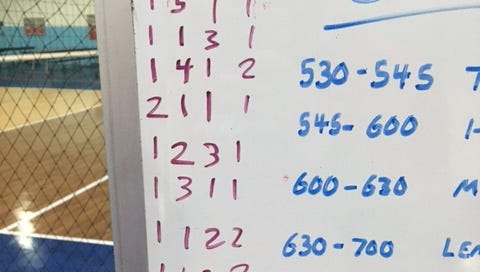 1 5 1 1
1 1 3 1
1 4 1 2
2 1 1 1
1 2 3 1
1 3 1 1
1 1 2 2
530-545
545-600
600-630
630-700